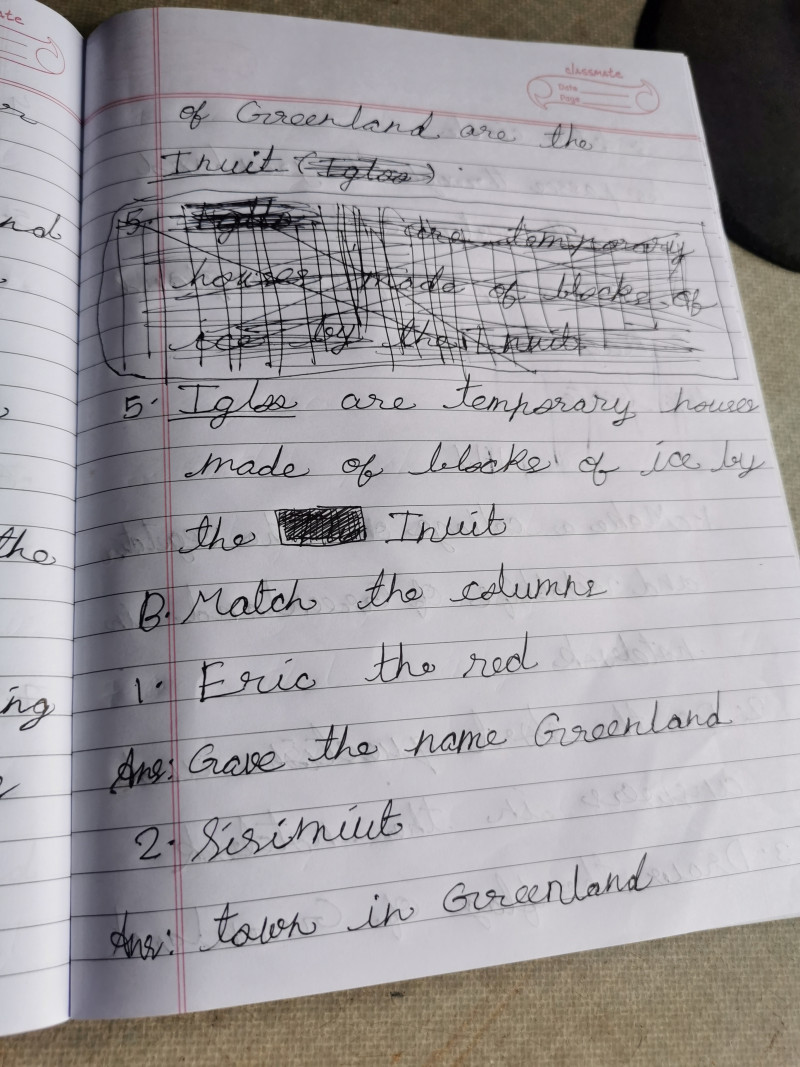 ate
classmate
Date
Page
of Greenland are the
Inuit (Igloo)
5. Igloo are temporary
houses made of blocks of
ice by the Inuit
5. Igloo are temporary houses
made of blocks of ice by
the Inuit
B. Match the columns
1. Eric the red
Ans: Gave the name Greenland
2. Sisimiut
Ans: town in Greenland
nd
the
ing